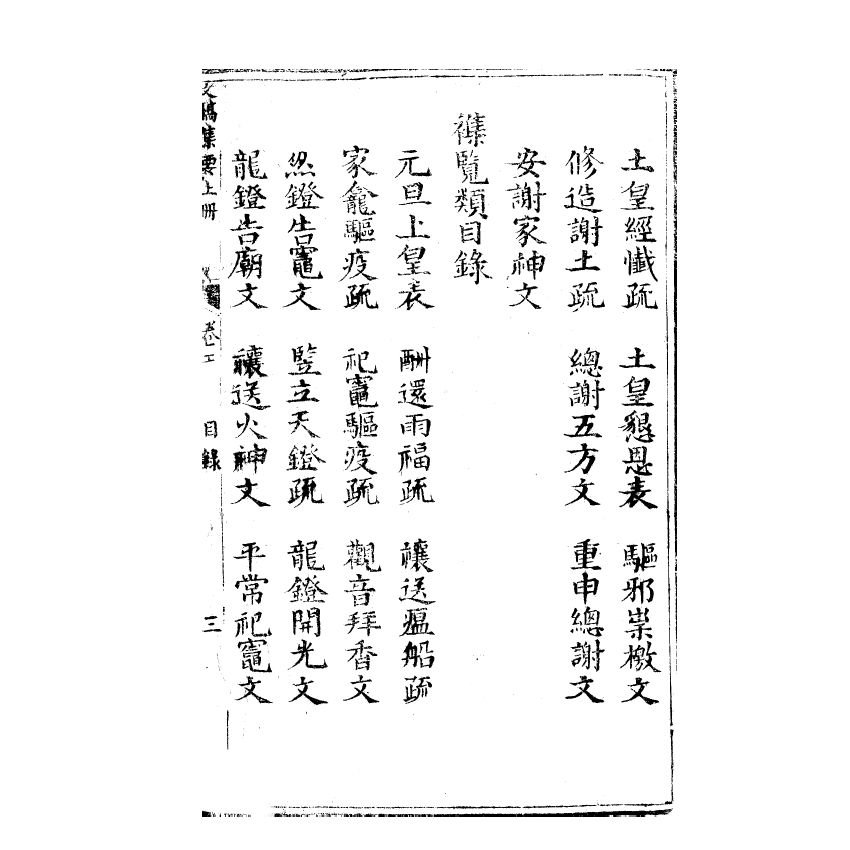 土皇經懺疏　土皇懇恩表　驅邪祟檄文
修造謝土疏　總謝五方文　重申總謝文
安謝家神文
襍覽類目錄
元旦上皇表　酬還雨福疏　禳送瘟船疏
家龕驅疫疏　祀竈驅疫疏　觀音拜香文
然鐙告竈文　竪立天鐙疏　龍鐙開光文
龍鐙告廟文　禳送火神文　平常祀竈文
文稿集要上册　卷二　目錄　三